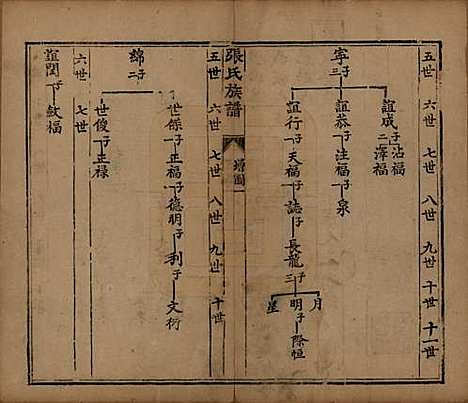 五世 六世 七世 八世 九世 十世 十一世
寧 三子
誼成 二子 沾福
澤福
誼恭 子 注福 子 泉
誼行 子 天福 子 誌 子 長龍 三子
月
明 子 際恒
星
張氏族譜
五世 六世 七世 八世 九世 十世
綿 二子
世傑 子 正福 子 德明 子 利 子 文衍
世俊 子 正祿
六世 七世
誼閏 子 敘福